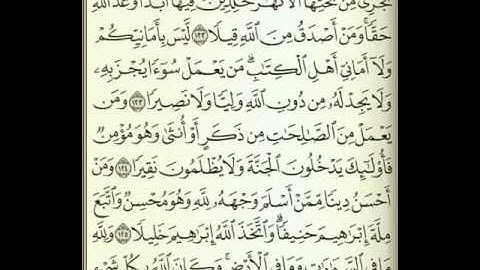 تَجْرِي مِن تَحْتِهَا الْأَنْهَٰرُ خَٰلِدِينَ فِيهَا أَبَدًا وَعْدَ اللَّهِ
حَقًّا وَمَنْ أَصْدَقُ مِنَ اللَّهِ قِيلًا ١٢٢ لَّيْسَ بِأَمَانِيِّكُمْ
وَلَا أَمَانِيِّ أَهْلِ الْكِتَٰبِ مَن يَعْمَلْ سُوءًا يُجْزَ بِهِۦ
وَلَا يَجِدْ لَهُۥ مِن دُونِ اللَّهِ وَلِيًّا وَلَا نَصِيرًا ١٢٣ وَمَن
يَعْمَلْ مِنَ الصَّٰلِحَٰتِ مِن ذَكَرٍ أَوْ أُنثَىٰ وَهُوَ مُؤْمِنٌ
فَأُو۟لَٰٓئِكَ يَدْخُلُونَ الْجَنَّةَ وَلَا يُظْلَمُونَ نَقِيرًا ١٢٤ وَمَنْ
أَحْسَنُ دِينًا مِّمَّنْ أَسْلَمَ وَجْهَهُۥ لِلَّهِ وَهُوَ مُحْسِنٌ وَاتَّبَعَ
مِلَّةَ إِبْرَٰهِيمَ حَنِيفًا وَاتَّخَذَ اللَّهُ إِبْرَٰهِيمَ خَلِيلًا ١٢٥ وَلِلَّهِ
مَا فِي السَّمَٰوَٰتِ وَمَا فِي الْأَرْضِ وَكَانَ اللَّهُ بِكُلِّ شَيْءٍ